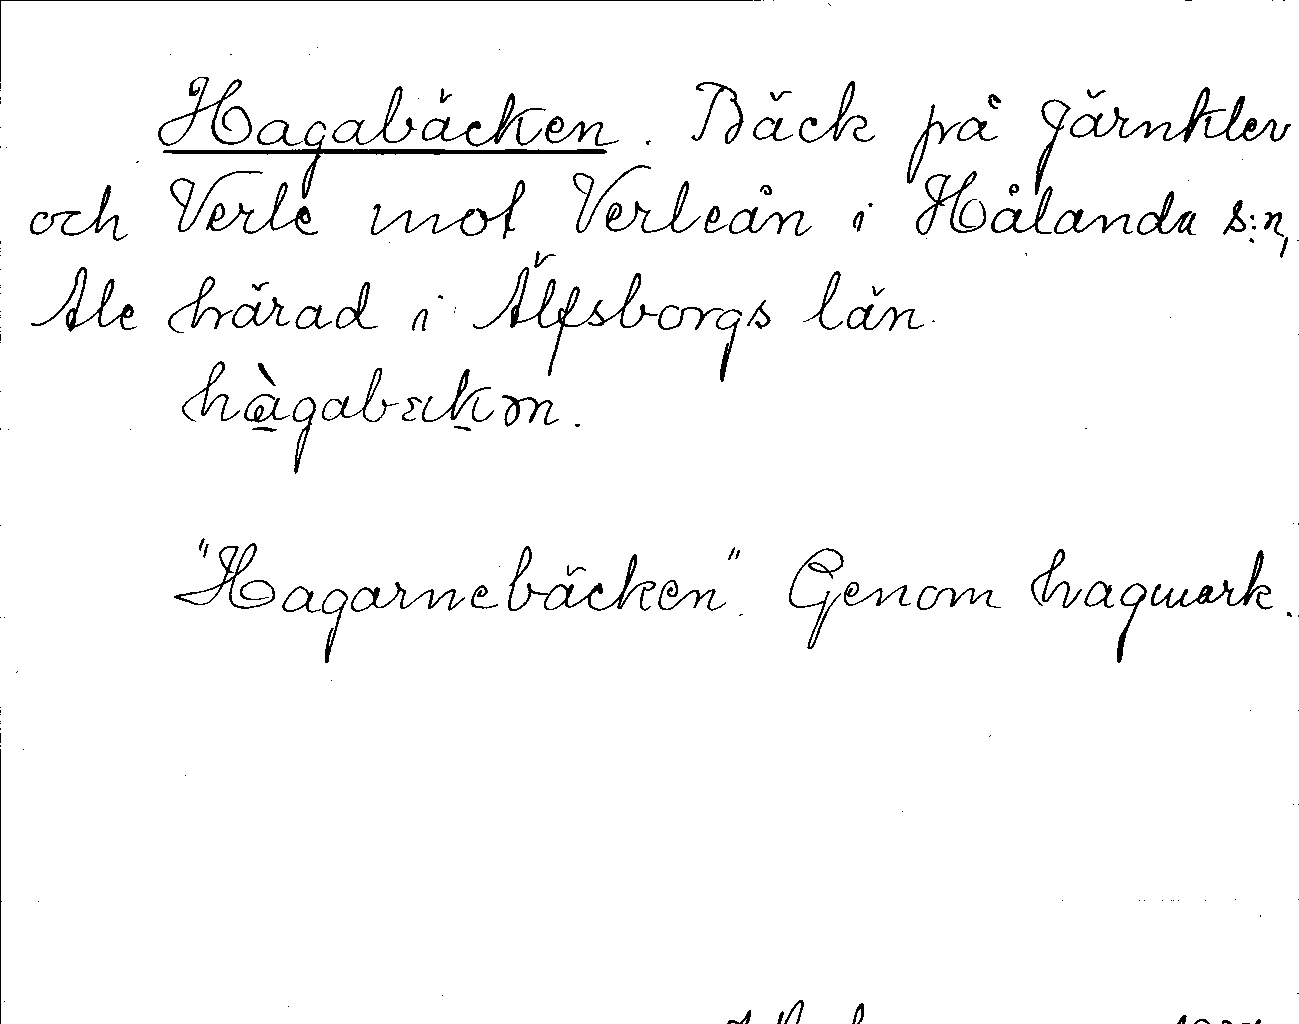 Hagabäcken. Bäck på Järnklev
och Verle mot Verleån i Hålanda s:n,
Ale härad i Älfsborgs län.
hàgabækən.
"Hagarnebäcken". Genom hagmark.